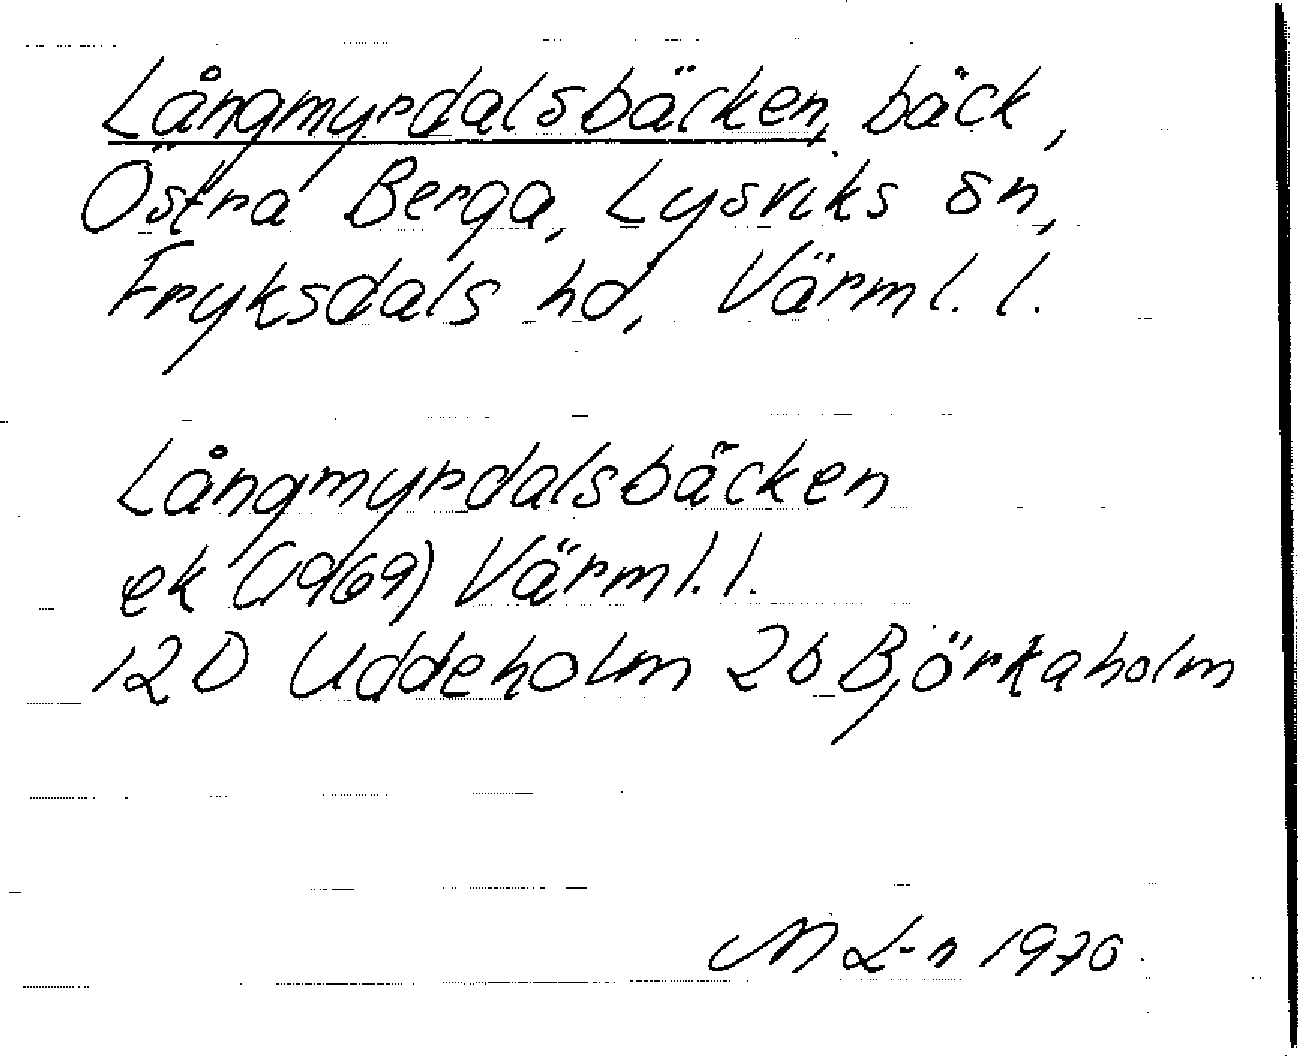 Långmyrdalsbäcken, bäck,
Östra Berga, Lysviks sn,
Fryksdals hd, Värml. l.
Långmyrdalsbäcken
ek (1969) Värml. l.
12D Uddeholm 2b Björkaholm
M L-n 1970.